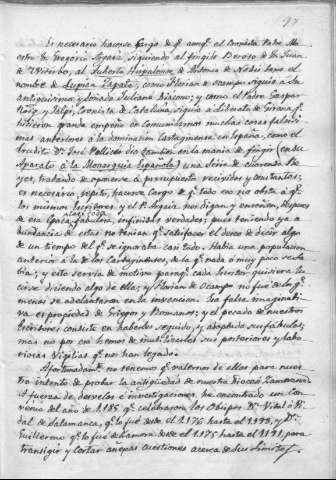 Es necesario hacerse cargo de qe. aunqe. el Cronista Padre Maestro Fr. Gregorio Argaiz, siguiendo al fingido Beroso de Fr. Juan
de Viterbo, al Auberto Hispalense de Antonio de Nobis bajo el
nombre de Lupian Zapata; como Florian de Ocampo siguio a su
antiquisimo y soñado Juliano Diacono; y como el Padre Gaspar
Roig y Jalpi, Cronista de Cataluña, siguio a Liberato de Girona, qe.
hicieron grande empeño de comunicarnos muchas cosas fabulosas
anteriores a la dominacion Cartaginense en España, como el
erudito Dn. José Pellicer dio tambien en la mania de fingir (en su
Aparato à la Monarquia Española) una serie de cuarenta Reyes,
tratando de oponerse à
es necesario, repito, hacerse cargo de qe. todo eso no obsta à qe.
los mismos Pellicer, y el P. Argaiz nos digan y enseñen, despues
de esa época fabulosa, infinitas verdades; pues teniendo ya abundancia
de estas no tenian qe. satisfacer el deseo de decir algo
de un tiempo del qe. se ignoraba casi todo. Habia una poblacion
anterior à la de los Cartaginenses, de la qe. nada ó muy poco se sabia;
y esto servia de motivo para qe. cada Escritor quisiera lucirse
diciendo algo de ella; y Florian de Ocampo no fue de los qe.
menos se adelantaron en la invencion. La falsa imaginativa
es propiedad de Griegos y Romanos; y el pecado de nuestros
Escritores consiste en haberles seguido, y adoptado sus fabulas;
mas no por eso hemos de inutilizarles sus posteriores y laboriosas
Vigilias qe. nos han legado.
Afortunadamte. no tenemos qe. valernos de ellos para nuestro
intento de probar la antigüedad de nuestra Diocesi Zamorana.
A fuerza de desvelos e investigaciones, he encontrado un Convenio
del año de 1185 qe. celebraron los Obispos Dn. Vital ó Vidal
de Salamanca, qe. lo fué desde el 1176 hasta el 1199, y Dn.
Guillermo qe. lo fué de Zamora desde el 1175 hasta el 1191, para
transigir y cortar añejas cuestiones acerca de sus limites,